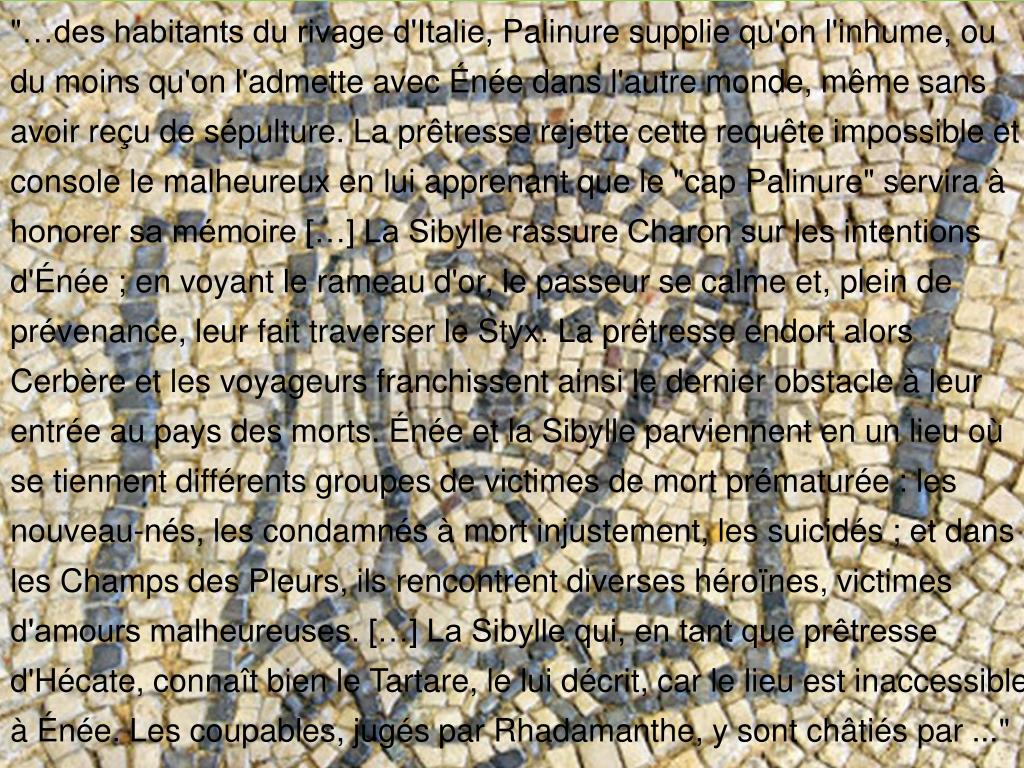 "…des habitants du rivage d'Italie, Palinure supplie qu'on l'inhume, ou
du moins qu'on l'admette avec Énée dans l'autre monde, même sans
avoir reçu de sépulture. La prêtresse rejette cette requête impossible et
console le malheureux en lui apprenant que le "cap Palinure" servira à
honorer sa mémoire […] La Sibylle rassure Charon sur les intentions
d'Énée ; en voyant le rameau d'or, le passeur se calme et, plein de
prévenance, leur fait traverser le Styx. La prêtresse endort alors
Cerbère et les voyageurs franchissent ainsi le dernier obstacle à leur
entrée au pays des morts. Énée et la Sibylle parviennent en un lieu où
se tiennent différents groupes de victimes de mort prématurée : les
nouveau-nés, les condamnés à mort injustement, les suicidés ; et dans
les Champs des Pleurs, ils rencontrent diverses héroïnes, victimes
d'amours malheureuses. […] La Sibylle qui, en tant que prêtresse
d'Hécate, connaît bien le Tartare, le lui décrit, car le lieu est inaccessible
à Énée. Les coupables, jugés par Rhadamanthe, y sont châtiés par ..."